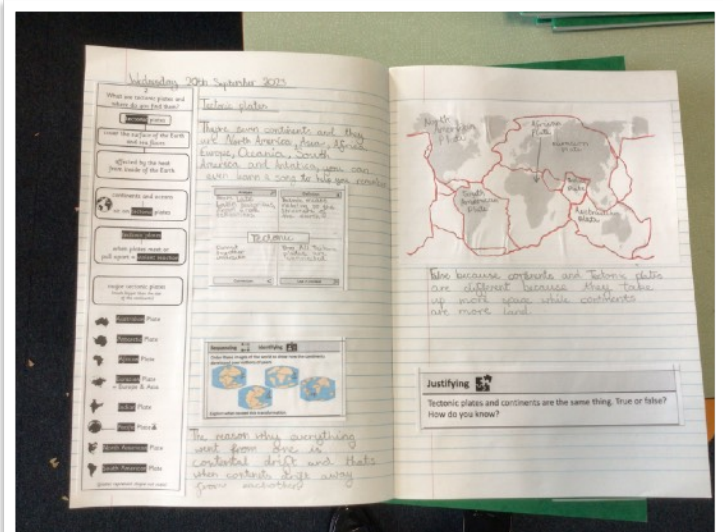 Wednesday 20th September 2023
2
What are tectonic plates and
where do you find them?
tectonic plates
cover the surface of the Earth
and sea floors
affected by the heat
from inside of the Earth
continents and oceans
sit on tectonic plates
tectonic plates
when plates meet or
pull apart = violent reaction
major tectonic plates
Australian Plate
Antarctic Plate
African Plate
Eurasian Plate
= Europe & Asia
Indian Plate
Pacific Plate
North American Plate
South American Plate
Tectonic plates
continents and they
are North America, Asia, Africa
Europe, Oceania, South
America and
you can
even learn a song to help you
Tectonic
Sequencing
Identifying
The reason why everything
went from one is
drift and thats
when continents drift away
from
North
American
Plate
African
Plate
Eurasian
Plate
South
American
Plate
Australian
Plate
False because continents and Tectonic plates
are different because they take
up more space while continents
are more land.
Justifying
Tectonic plates and continents are the same thing. True or false?
How do you know?